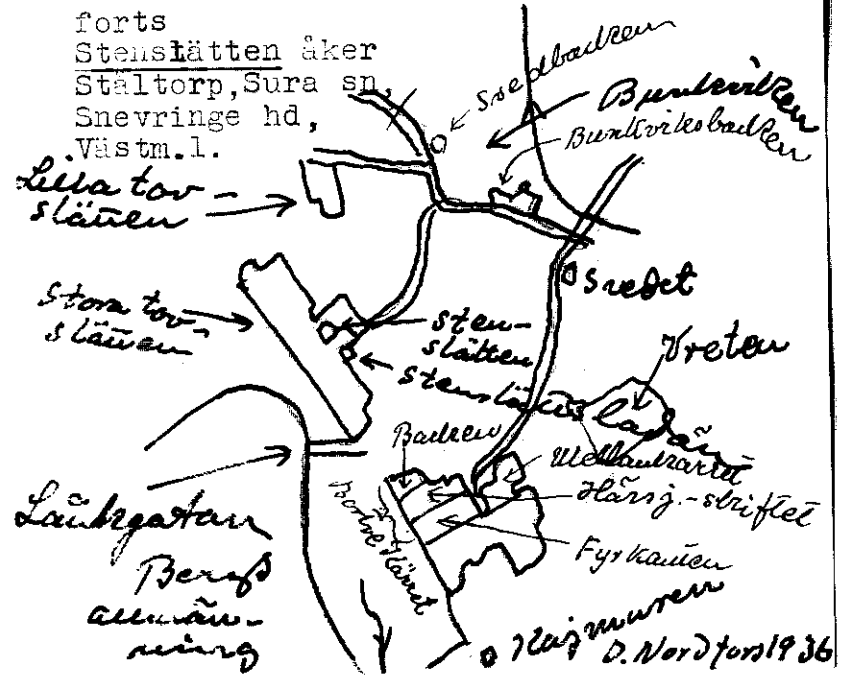 forts
Stenslätten åker
Ståltorp, Sura sn,
Snevringe hd,
Västm.l.
Svedbacken
Bunkviken
Bunkviksbacken
Lilla tov-
slätten
Svedet
Stora tov-
slätten
sten-
slätten
stenslättsladan
Vreten
Backen
Mellankärret
Hässj.-skiftet
Bortre kärret
Fyrkanten
Länkgatan
Bergs
allmän-
ning
Kojmuren
O. Nordfors 1936